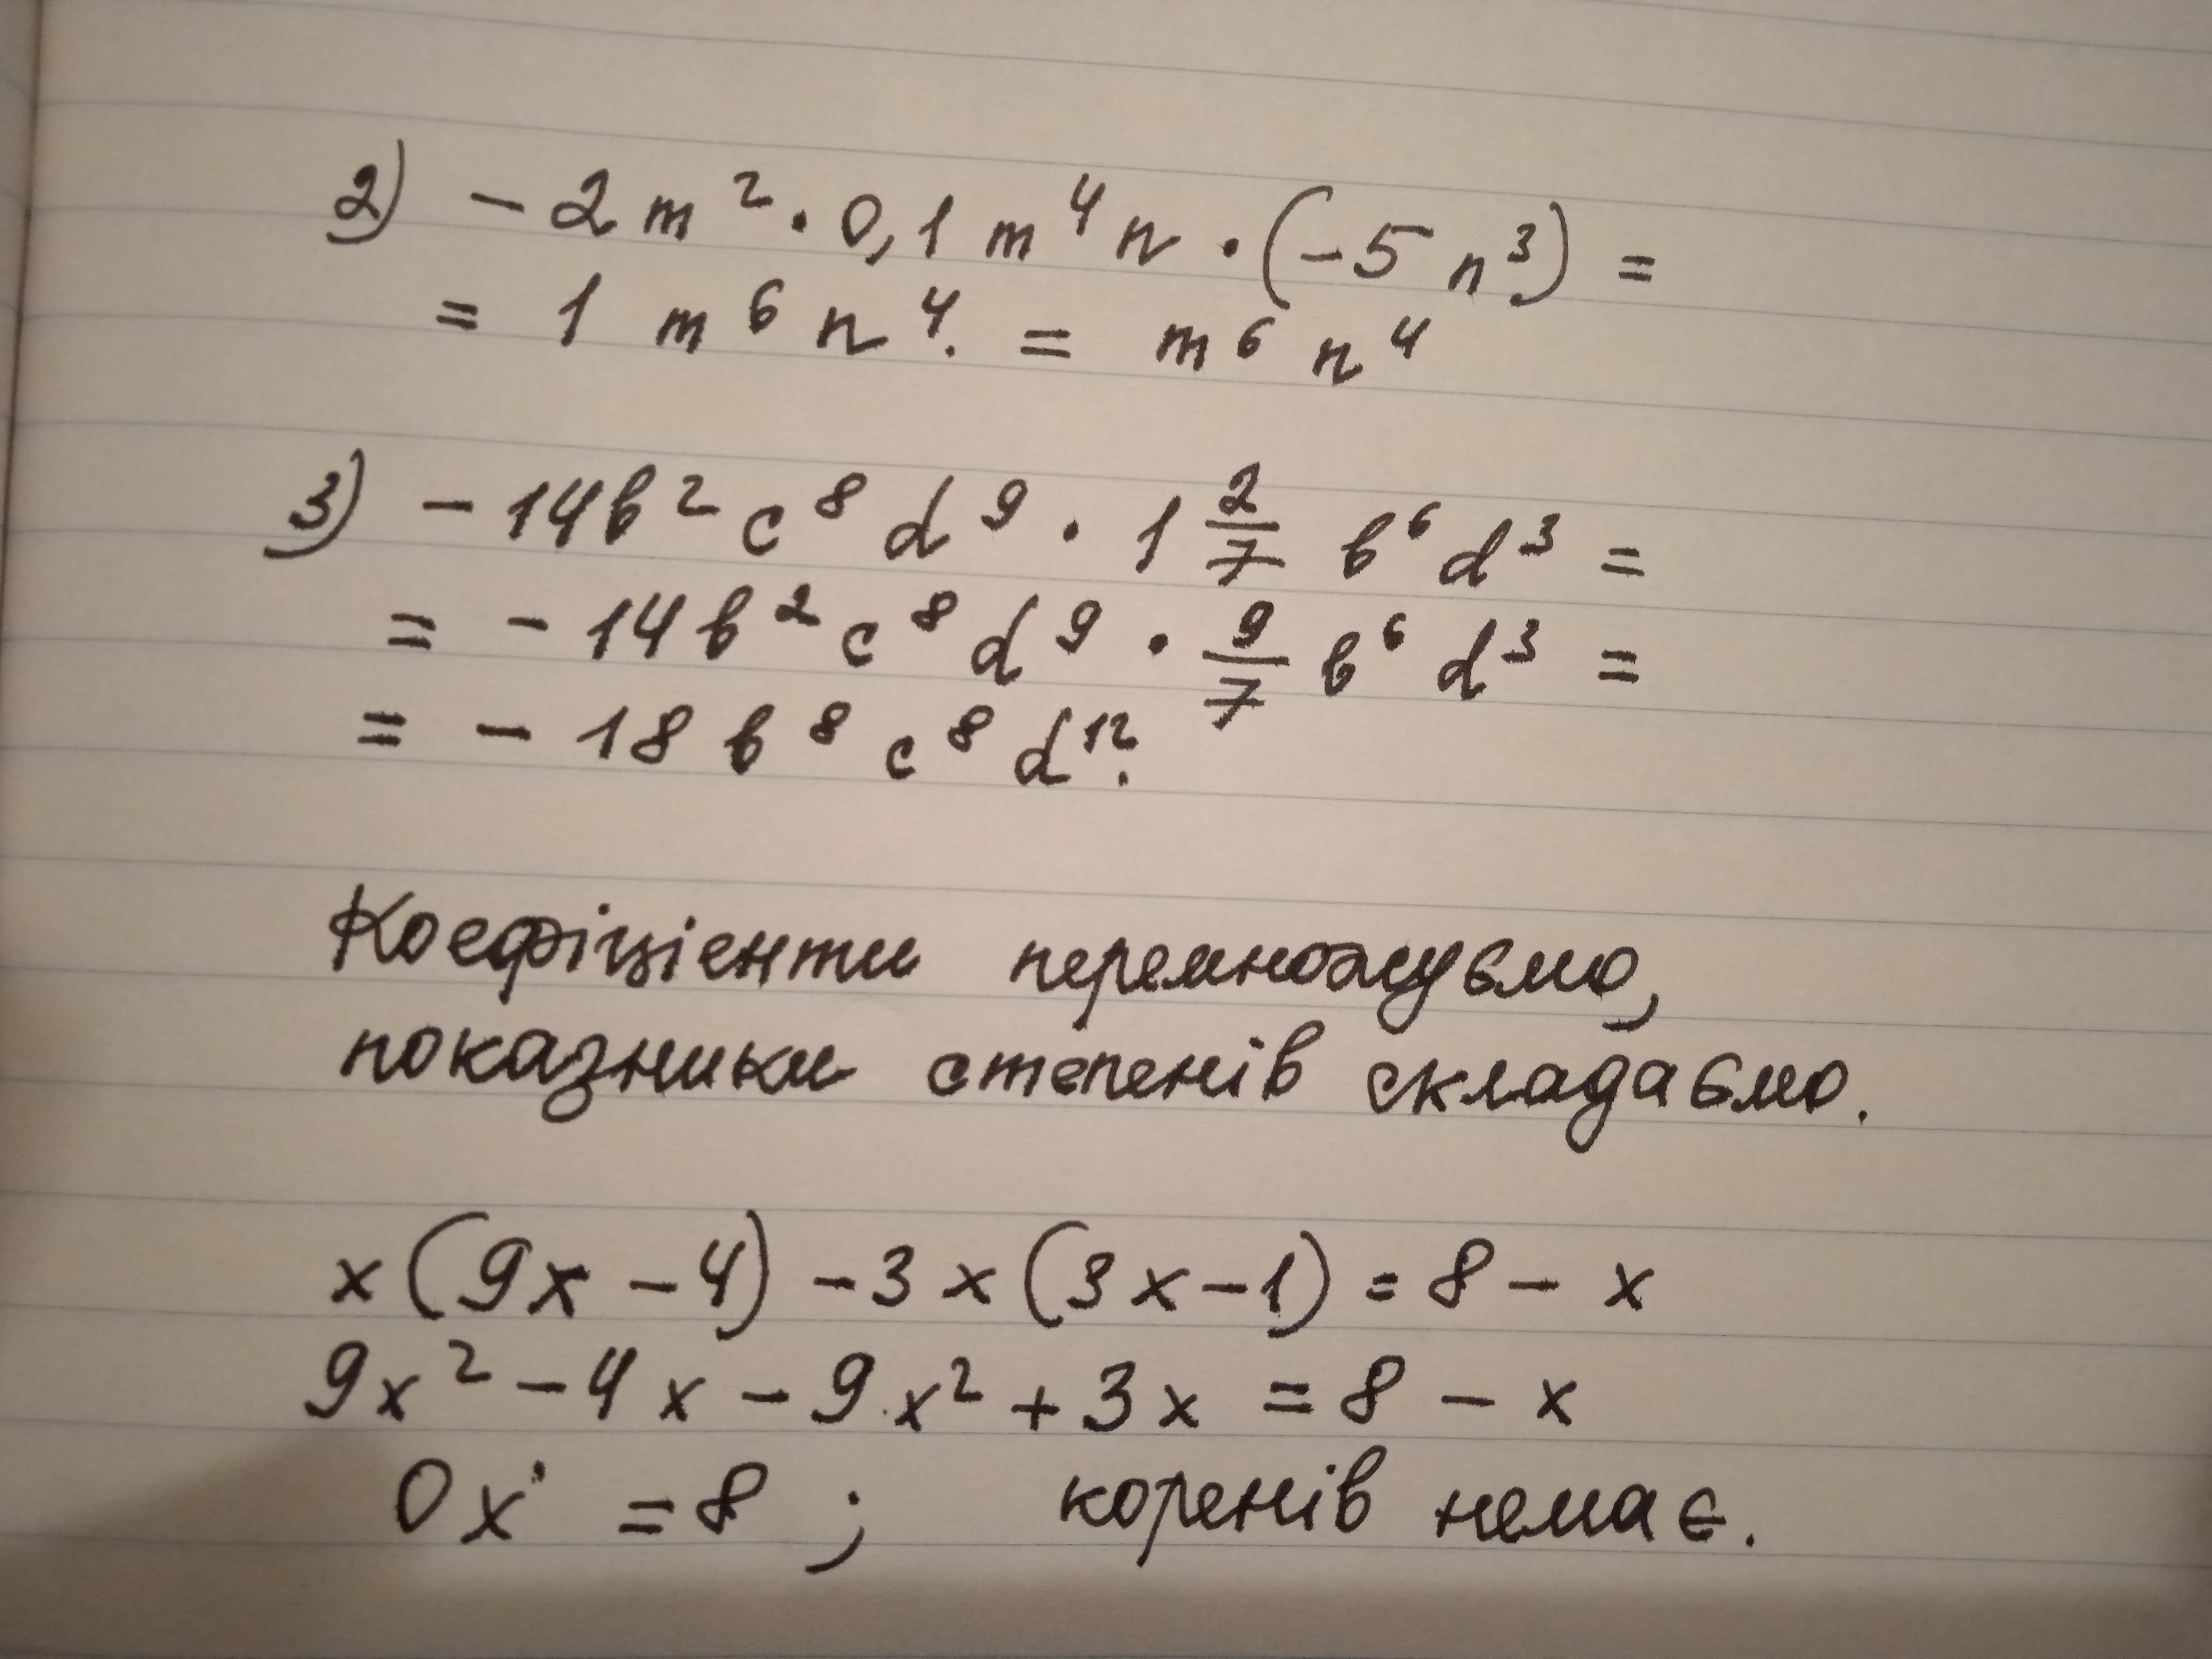 2) - 2 m² · 0,1 m⁴ n · (-5 n³) =
= 1 m⁶ n⁴. = m⁶ n⁴
3) - 14 в² c⁸ d⁹ · 1 2/7 в⁶ d³ =
= - 14 в² c⁸ d⁹ · 9/7 в⁶ d³ =
= - 18 в⁸ c⁸ d¹².
Коефіцієнти перемножуємо,
показники степенів складаємо.
x (9x - 4) - 3 x (3x - 1) = 8 - x
9x² - 4x - 9x² + 3x = 8 - x
0x = 8 ; коренів немає.